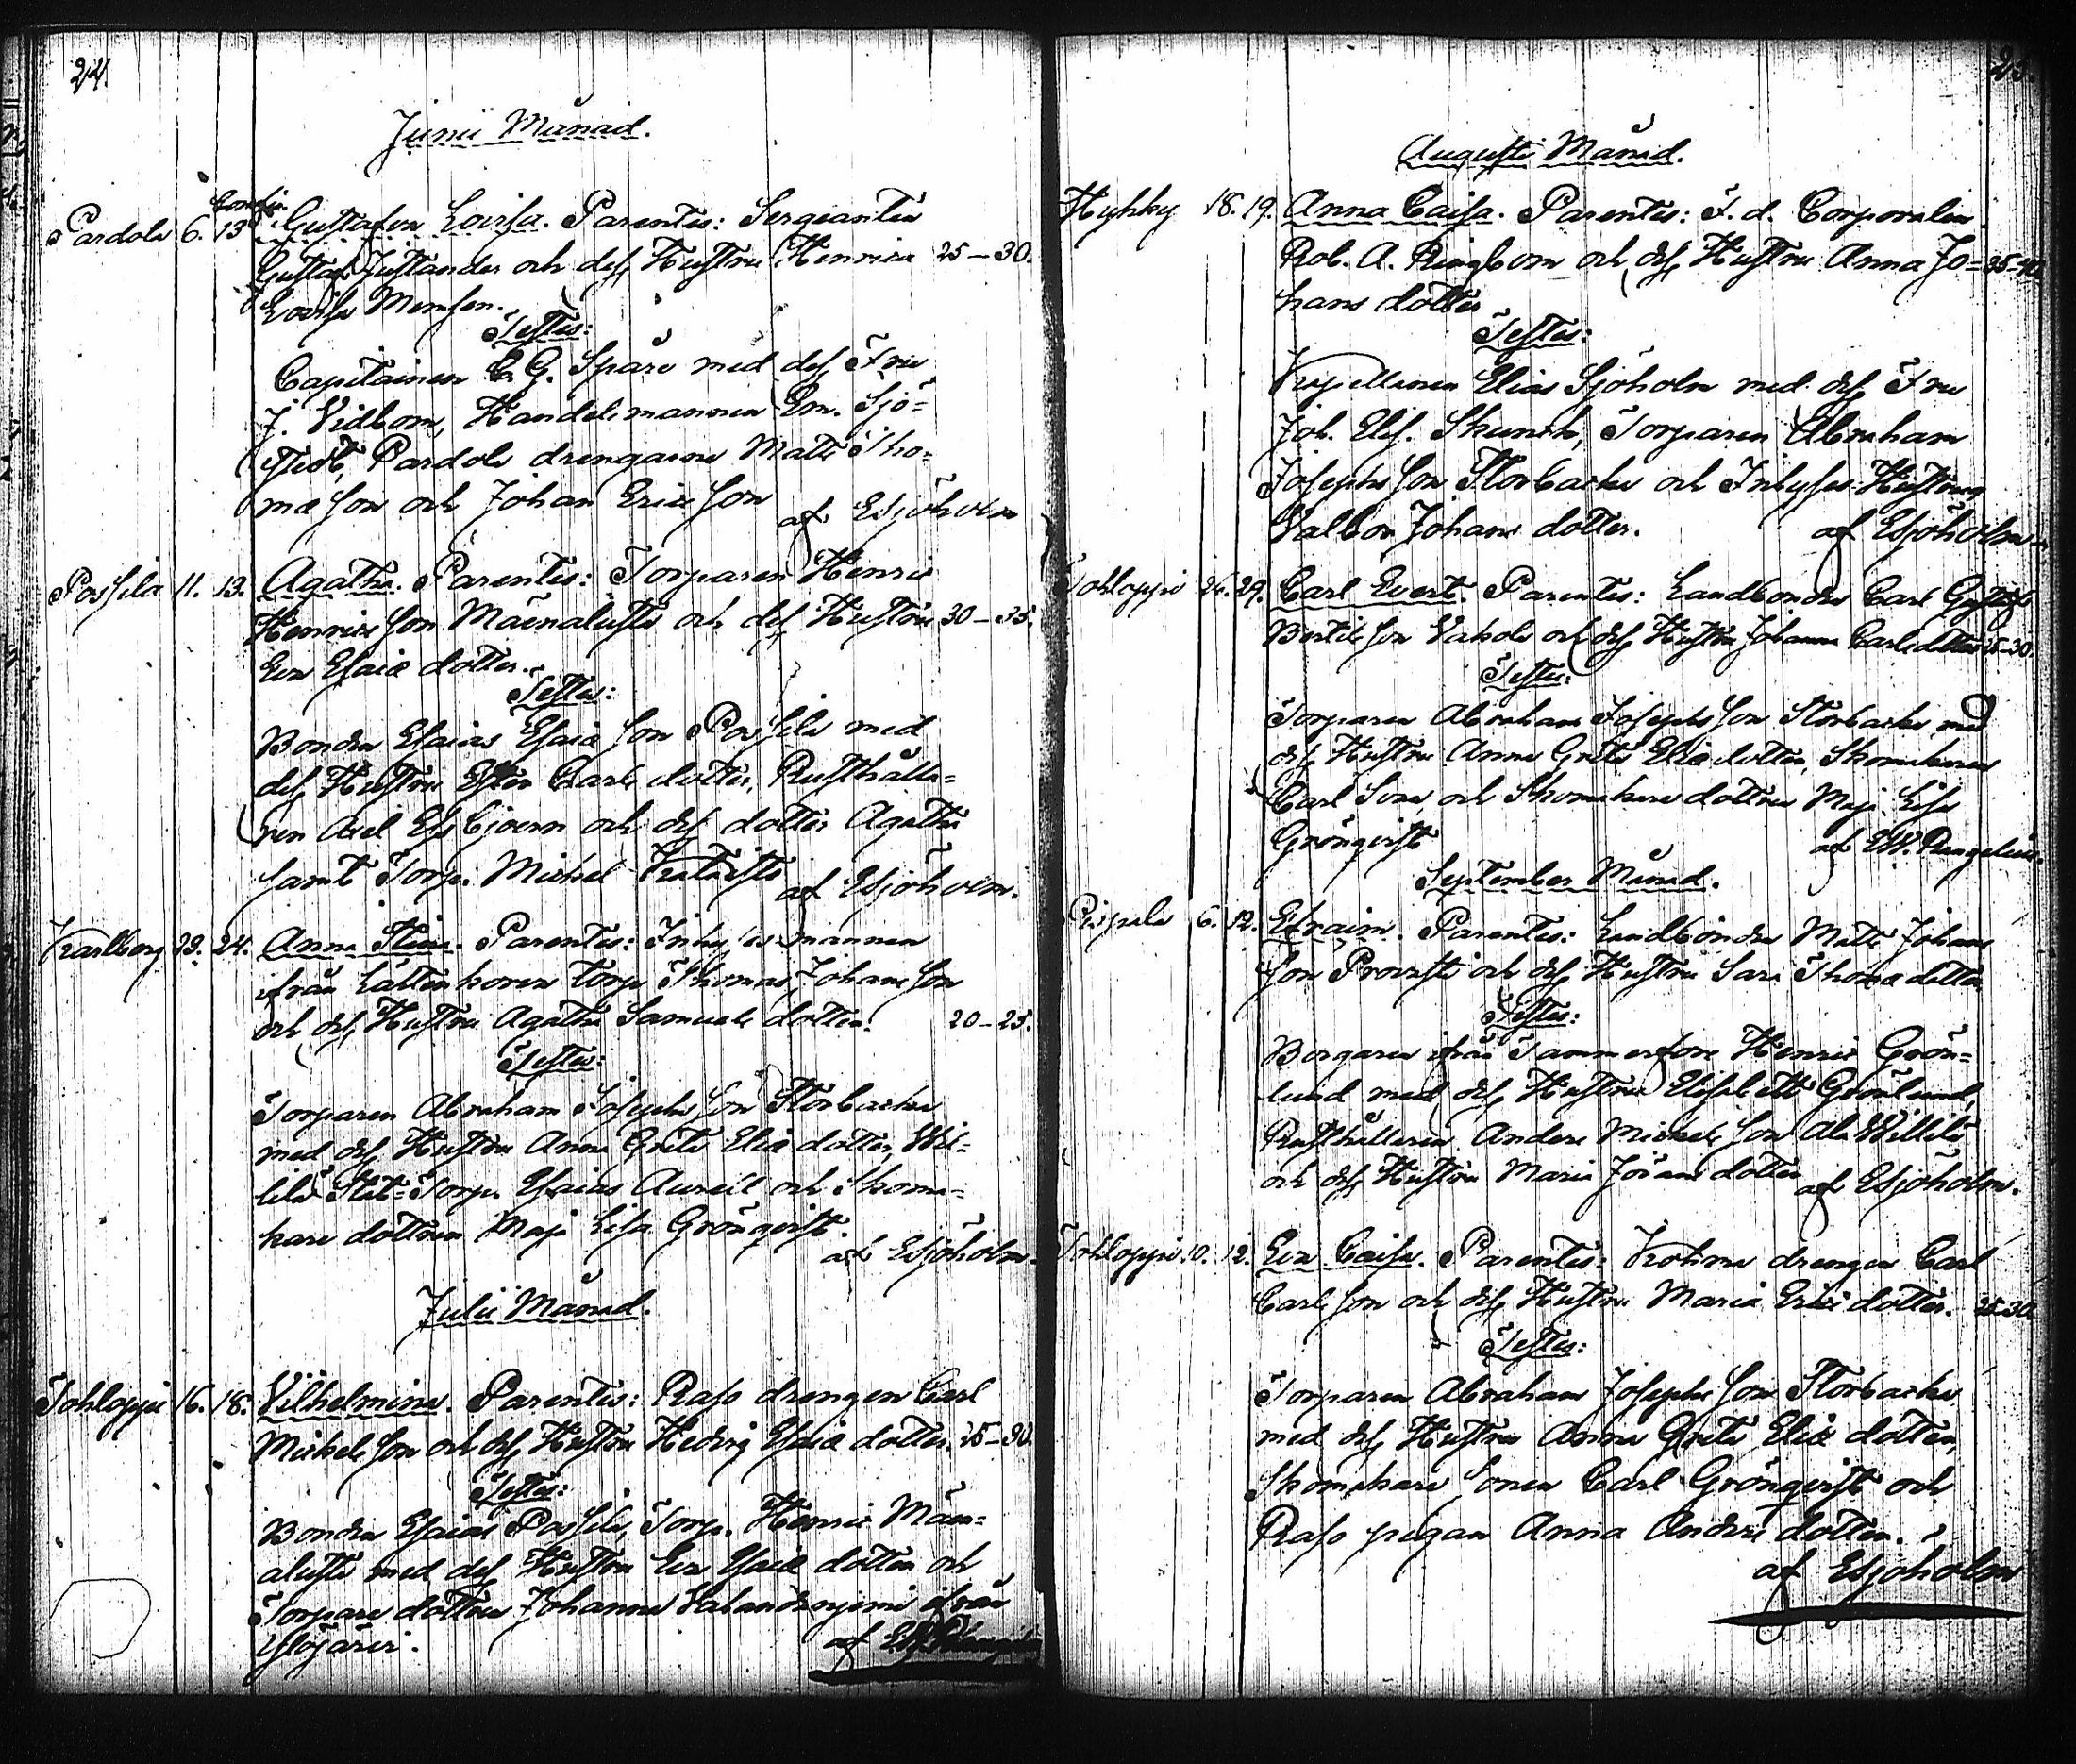 24.
Junii Månad.
Pardola 6. 13 Gustafva Lovisa. Parentes: Sergeanten
Gustaf Justander och dess Hustru Henrica 25–30.
Lovisa
Testes:
Capitainen C. G. Spåre med dess Fru
J. Vidbom, Handelsmannen Em. Sjö=
stedt, Pardola drengarne Matts Tho=
mæ Son och Johan Ericsson
af ESjöholm
Possila 11. 13. Agatha. Parentes: Torparen Henric
Henrics Son Mäenalusta och dess Hustru 30–35.
Eva Esaiæ dotter.
Testes:
Bonden Esaias Esaiæ Son Possila med
dess Hustru Ester Carls dotter, Rusthålla=
ren Axel Essbjoern och dess dotter Agatha
samt Torp. Michel
af ESjöholm.
Karlberg 23. 24. Anna Stina. Parentes: Inhysesmannen
ifrån torp Thomas Johans Son
och dess Hustru Agatha Samuels dotter. 20–25.
Testes:
Torparen Abraham Josephs Son Storbacka
med dess Hustru Anna Greta Eliæ dotter, Wil=
lilä Torp. Esaias Aurell och Skoma=
kare dottren Maja Lisa Grönqvist.
af ESjöholm.
Julii Månad.
Tohloppi 16. 18. Vilhelmina. Parentes: Raso drengen Carl
Michels Son och dess Hustru Hedvig Esaiæ dotter. 25–30.
Testes:
Bonden Esaias Possila, Torp. Henric Mäen=
alusta med dess Hustru Eva Esaiæ dotter och
Torpare dottren Johanna ifrån
Ylöjärvi.
af
25.
Augusti Månad.
Hyhky 18. 19. Anna Caisa. Parentes: F. d. Corporalen
Rob. A. Ringbom och dess Hustru Anna Jo= 35–40
hans dotter
Testes:
Kapellanen Elias Sjöholm med dess Fru
Joh. Elis. Skunck, Torparen Abraham
Josephs Son Storbacka och Inhyses Hustrun
Valbor Johans dotter.
af ESjöholm.
Tohloppi 26. 29. Carl Evert. Parentes: Landbonden Carl Gustaf
Bertils Son Vahola och dess Hustru Johanna Carls dotter 25–30.
Testes:
Torparen Abraham Josephs Son Storbacka med
dess Hustru Anna Greta Eliæ dotter, Skomakaren
Carl och Skomakare dottren Maja Lisa
Grönqvist
af
September Månad.
Pispala 6. 12. Efraim. Parentes: Landbonden Matts Johans
Son Provasti och dess Hustru Sara Thomæ dotter
Testes:
Borgaren ifrån Tammerfors Henric Grön=
lund med dess Hustru Elisabett Grönlund,
Rusthållaren Anders Michels Son Ala Willilä
och dess Hustru Maria Jörans dotter
af ESjöholm.
Tohloppi. 10. 12. Eva Caisa. Parentes: drengen Carl
Carls Son och dess Hustru Maria Erics dotter. 25–30.
Testes:
Torparen Abraham Josephs Son Storbacka
med dess Hustru Anna Greta Eliæ dotter,
Skomakare Sonen Carl Grönqvist och
Raso pigan Anna Anders dotter.
af ESjöholm